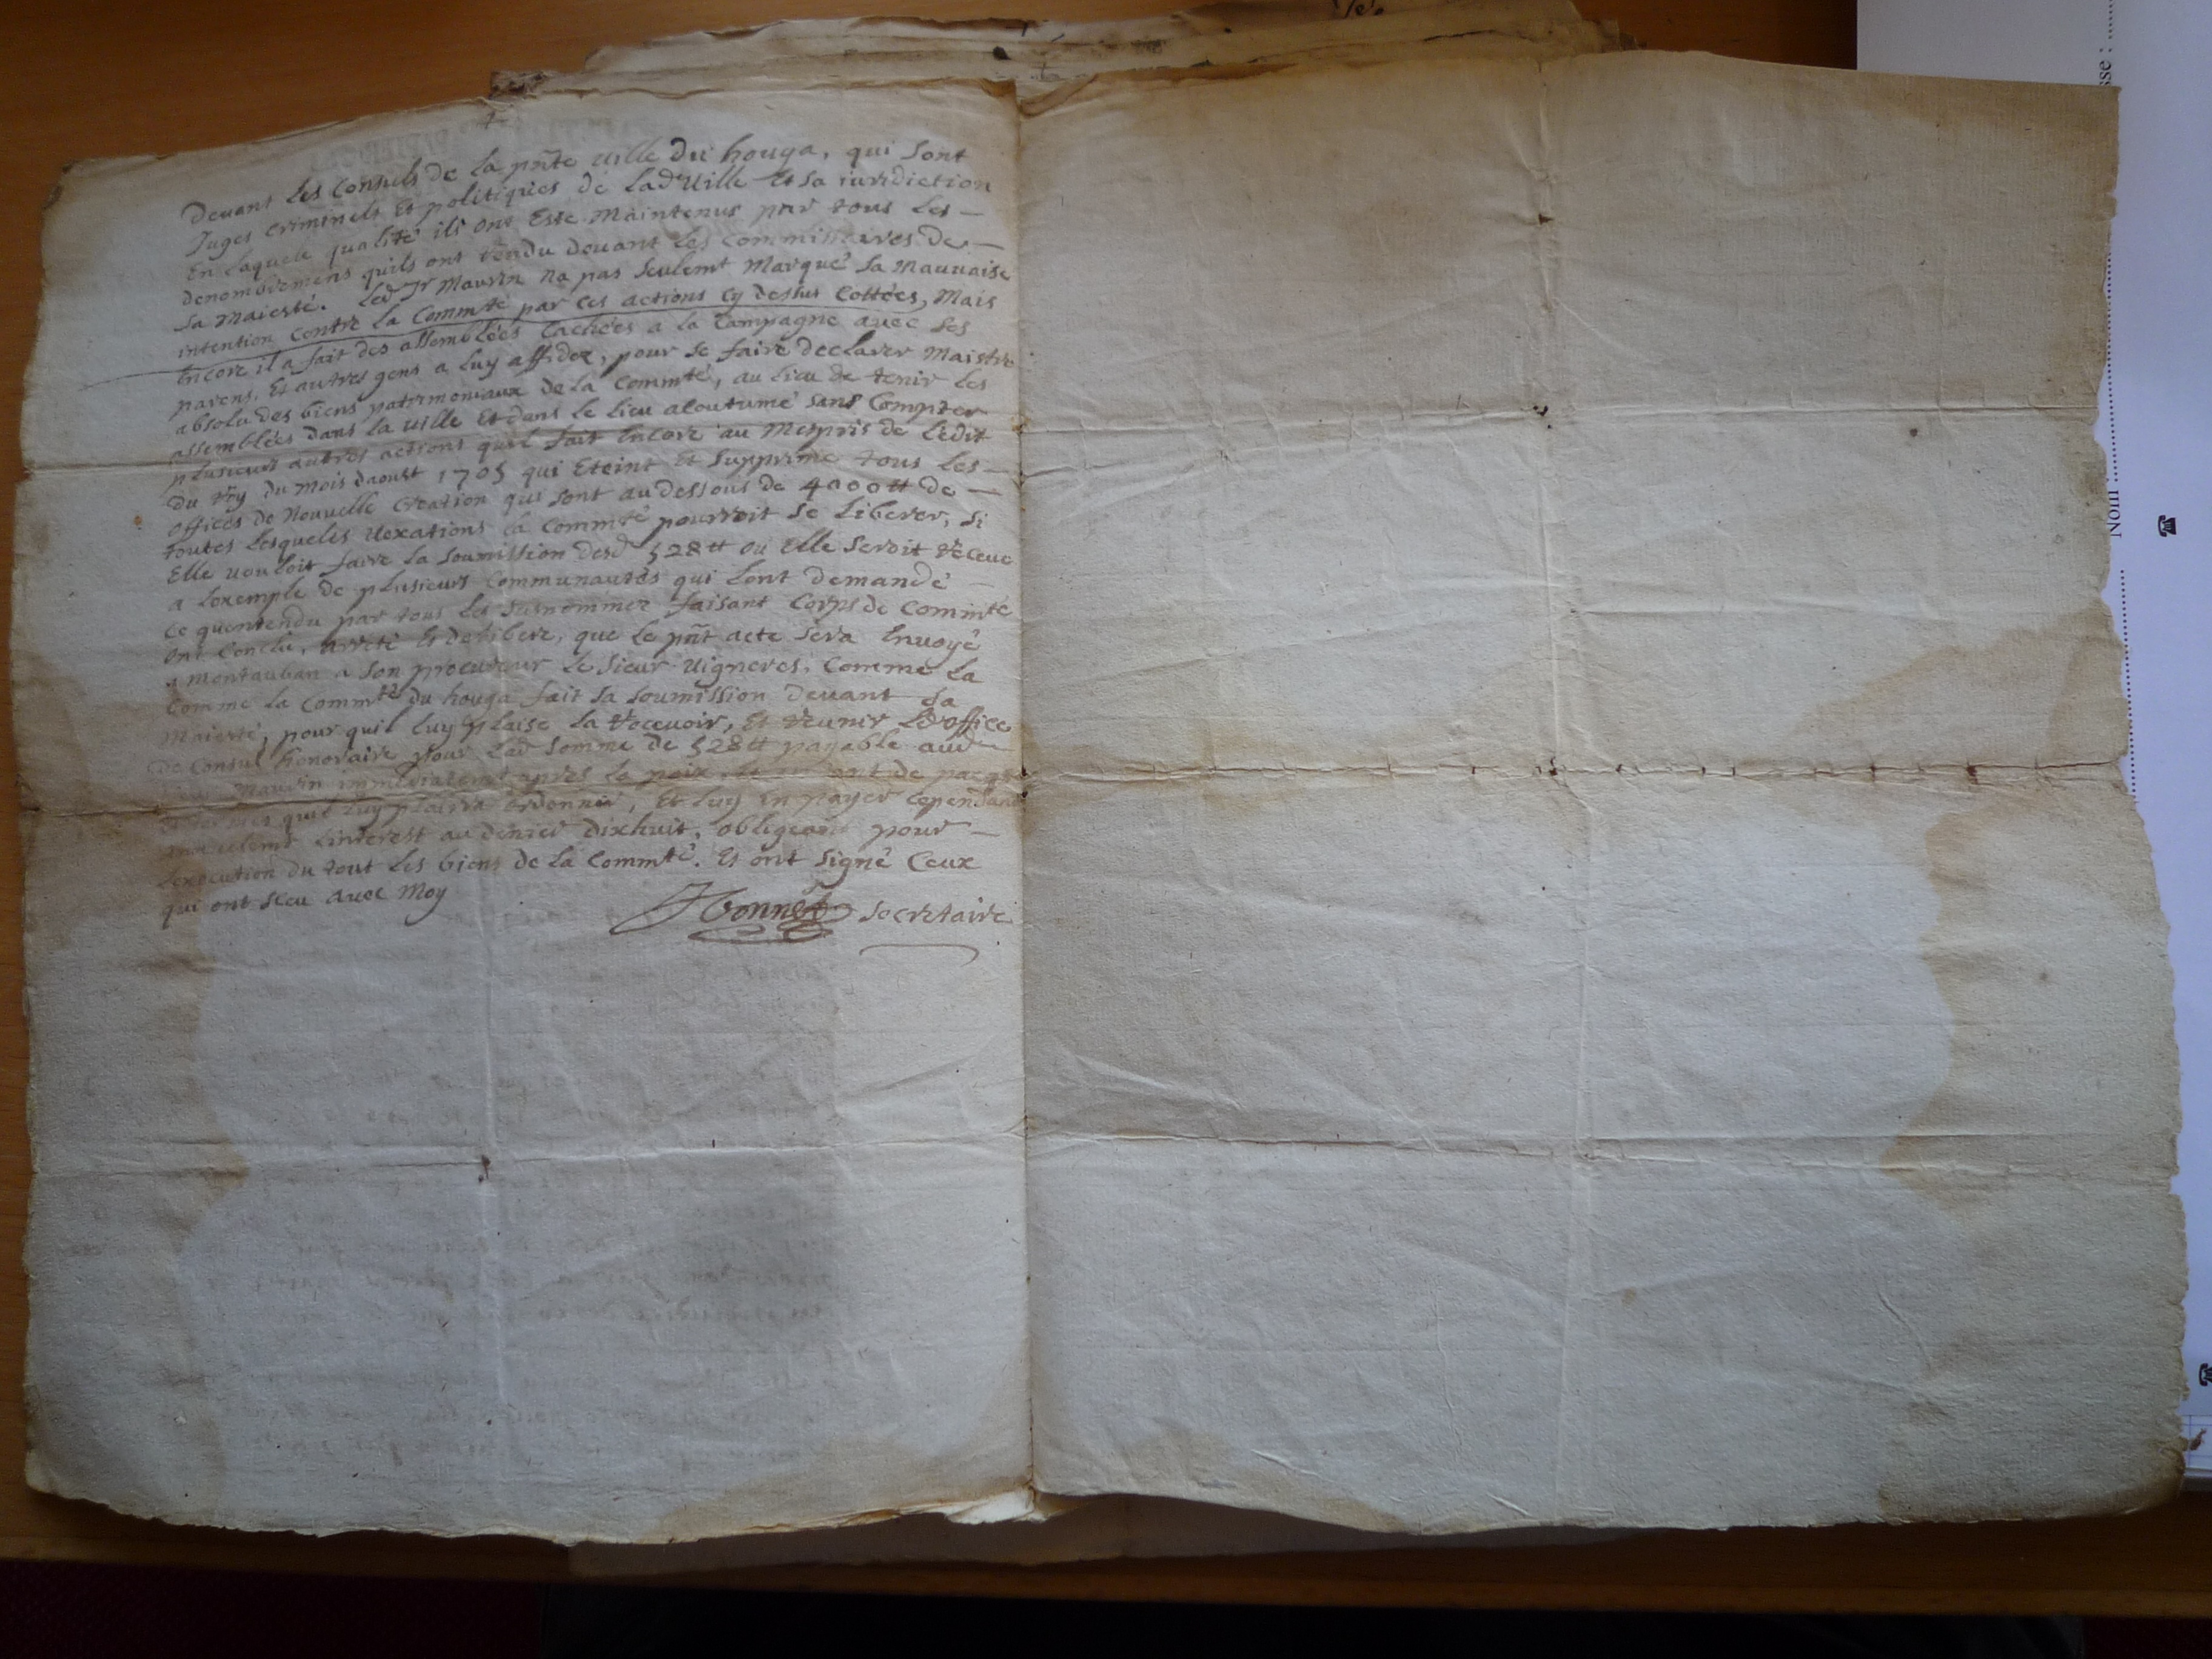 devant les Consuls de la pñte ville du houga, qui sont
Juges Criminels Et politiques de lad Ville Et sa iurediction
En laquele qualité ils ont Esté Maintenus par tous les
denombremens quils ont rendu devant les Commissaires de
sa Maiesté. Led Sr Maurin na pas seulemt Marqué sa Mauvaise
intention Contre la Commté par ces actions Cy dessus Cottées, Mais
Encore il a fait des assemblées Cachées a la Campagne avec ses
parens, Et autres gens a luy affidez, pour se faire declarer Maistre
absolu des biens patrimoniaux de la Commté, au lieu de tenir les
assemblées dans la ville Et dans le lieu acoutumé sans Compter
plusieurs autres actions quil fait Encore au Mespris de Ledit
du roy du Mois daoust 1705 qui Eteint Et supprime tous les
offices de Nouvelle Creation qui sont au dessous de 4000 tt de
toutes lesqueles Vexations la Commté pourroit se liberer, si
Elle vouloit faire la soumission desd 528 tt ou Elle seroit receue
a lexemple de plusieurs Communautés qui lont demandé
Ce quentendu par tous les susnommez faisant Corps de Commté
ont Conclu, arreté Et deliberé, que le pñt acte sera Envoyé
a Montauban a son procureur le sieur Vigneres, Comme la
Comme la Commté du houga fait sa soumission devant sa
Maiesté, pour quil luy plaise la recevoir, Et reunir led office
de Consul honoraire pour lad somme de 528 tt payable aud
Maurin immediatemt apres la paix, Et de
quil luy plairra ordonner, Et luy En payer Cependant
linterest au denier dixhuit, obligeant pour
lexecution du tout les biens de la Commté. Et ont signé Ceux
qui ont sceu avec Moy
Bonnet secretaire
Nom
sse :